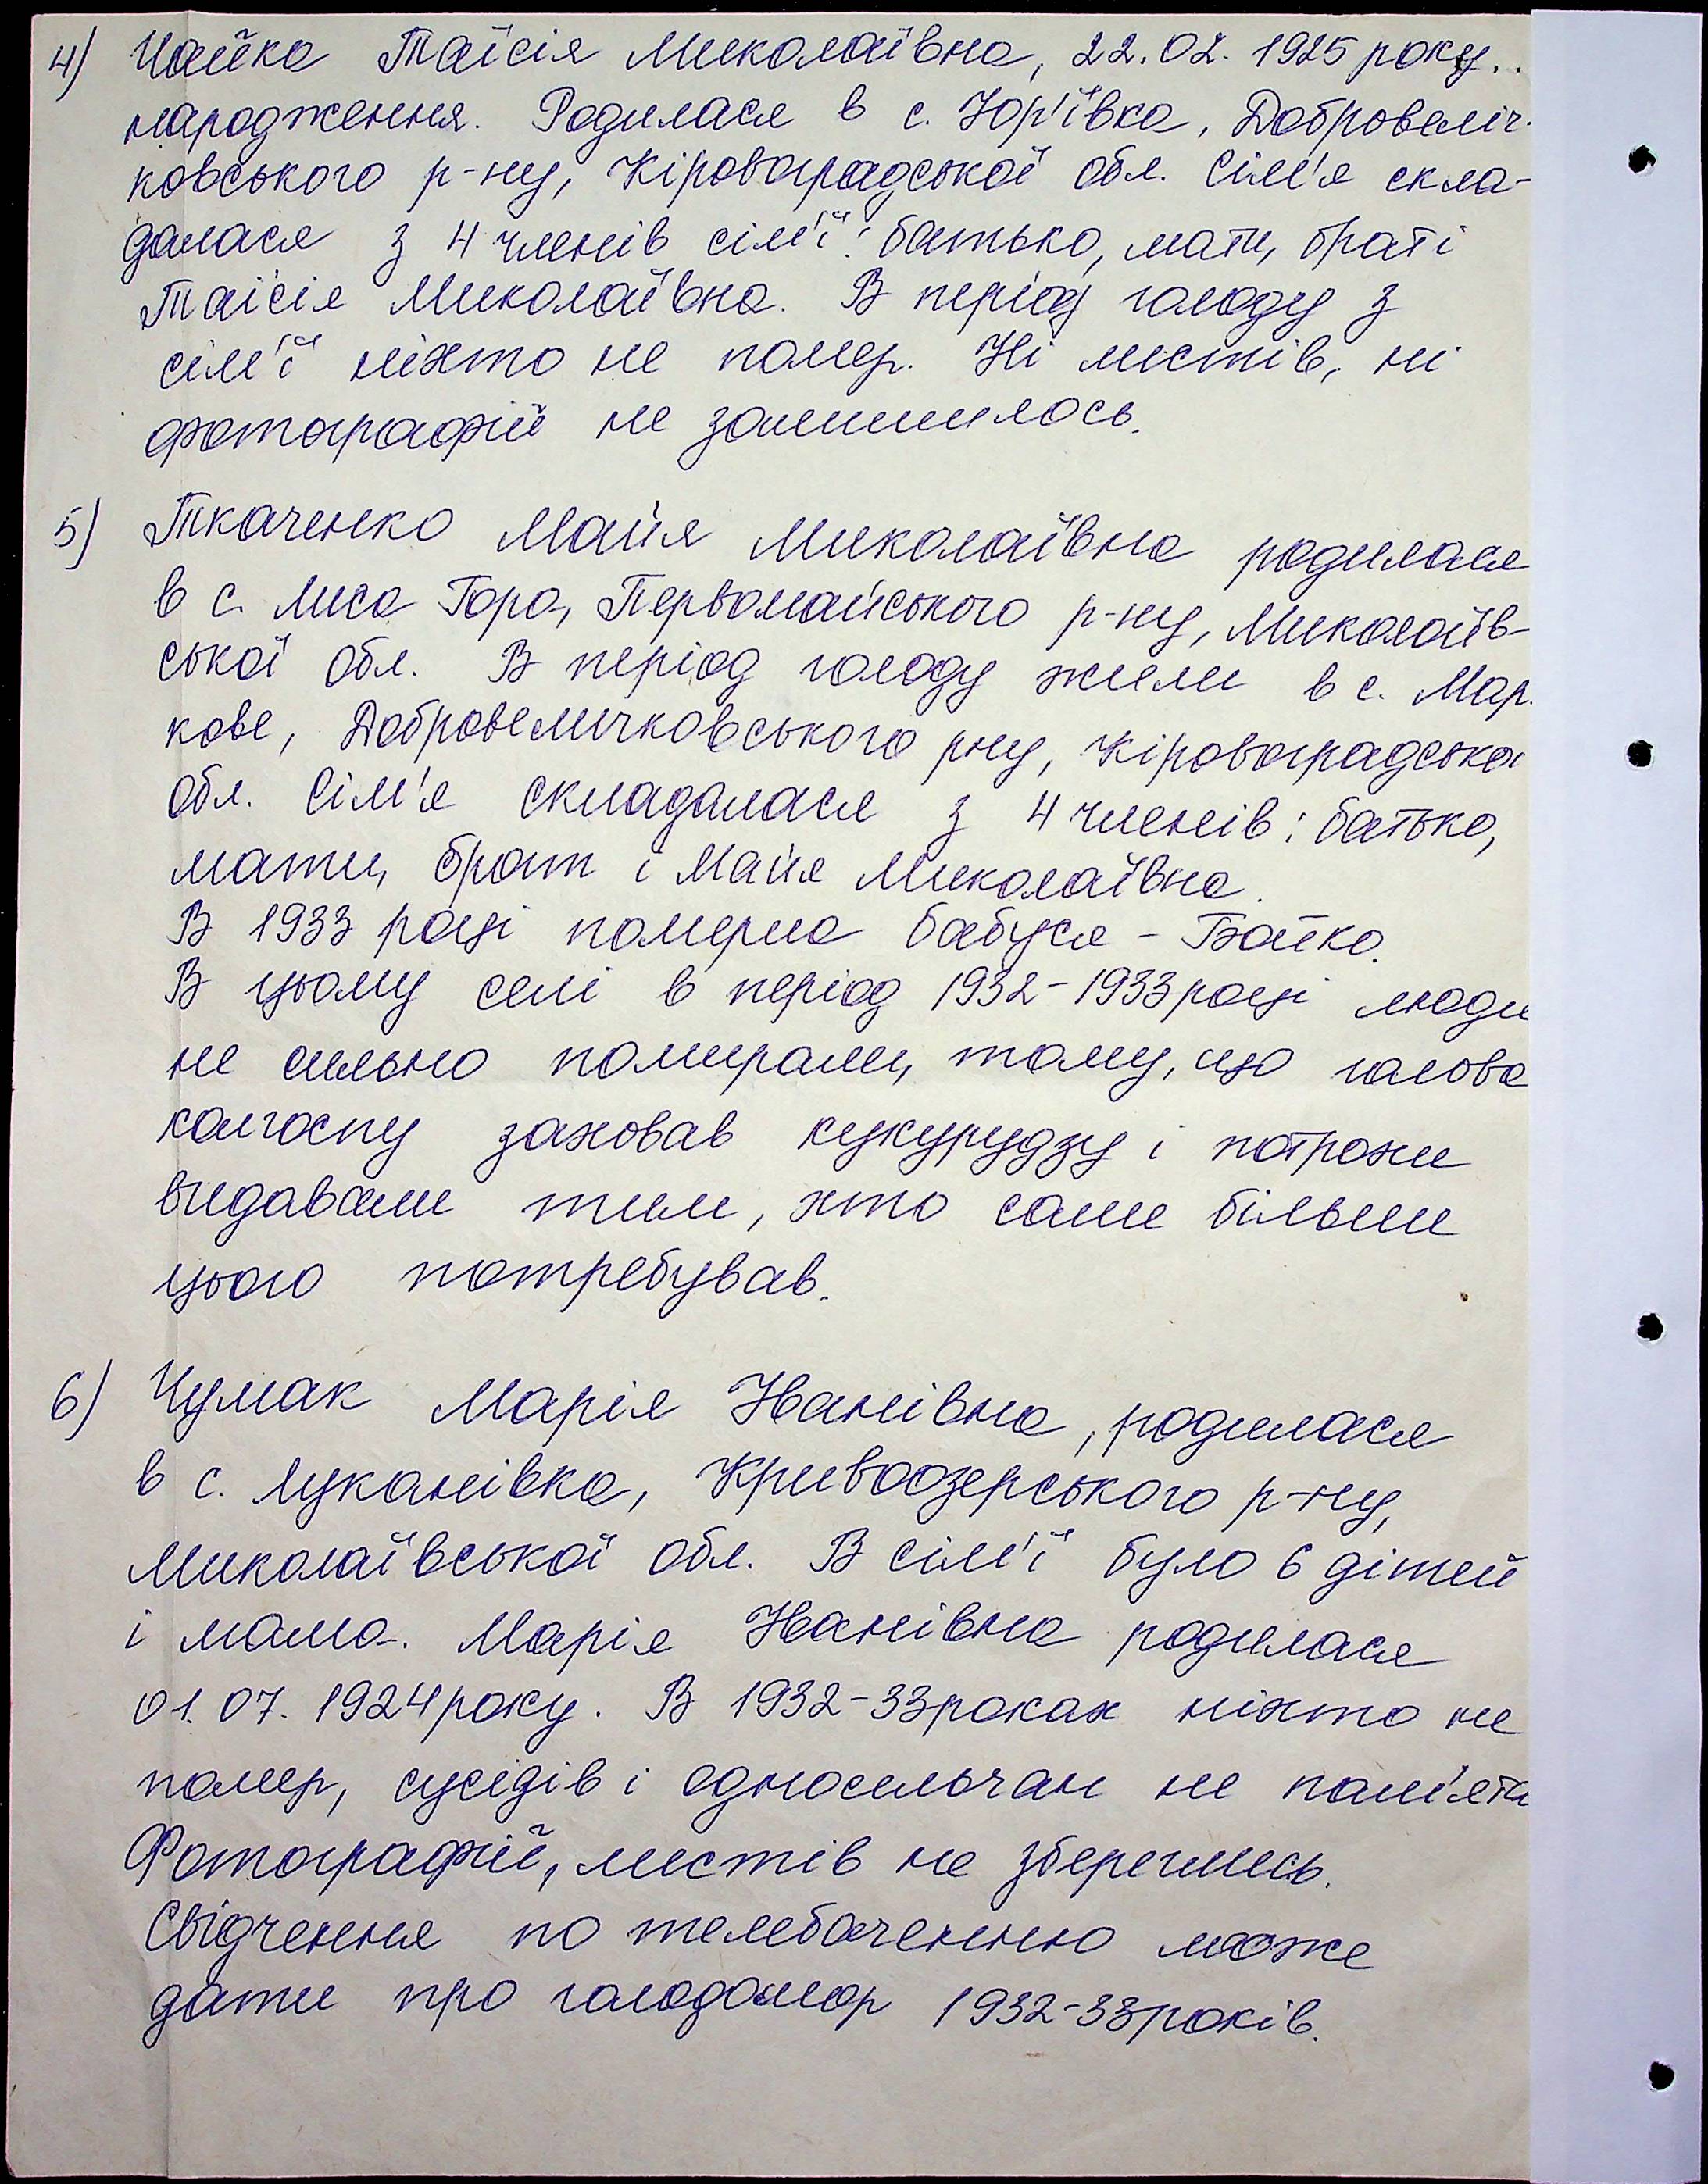 4) Чайка Таїсія Миколаївна, 22.02.1925 року..
народження. Родилася в с. Юр'ївка, Добровеліч-
ковського р-ну, Кіровоградської обл. Сім'я скла-
далася з 4 членів сім'ї: батько, мати, брат і
Таїсія Миколаївна. В період голоду з
сім'ї ніхто не помер. Ні листів, ні
фотографій не залишилось.
5) Ткаченко Майя Миколаївна родилася
в с. Лиса Гора, Первомайського р-ну, Миколаїв-
ської обл. В період голоду жили в с. Мар-
кове, Добровеличковського рну, Кіровоградської
обл. Сім'я складалася з 4 членів: батько,
мати, брат і Майя Миколаївна.
В 1933 році померла бабуся - Бойко.
В цьому селі в період 1932-1933 році люди
не сильно помирали, тому, що голова
колгоспу заховав кукурудзу і потрохи
видавали тим, хто саме більше
цього потребував.
6) Чумак Марія Іванівна, родилася
в с. Луканівка, Кривоозерського р-ну,
Миколаївської обл. В сім'ї було 6 дітей
і мама. Марія Іванівна родилася
01.07.1924 року. В 1932-33 роках ніхто не
помер, сусідів і односельчан не пам'ята
Фотографій, листів не збереглись.
Свідчення по телебаченню може
дати про голодомор 1932-33 років.